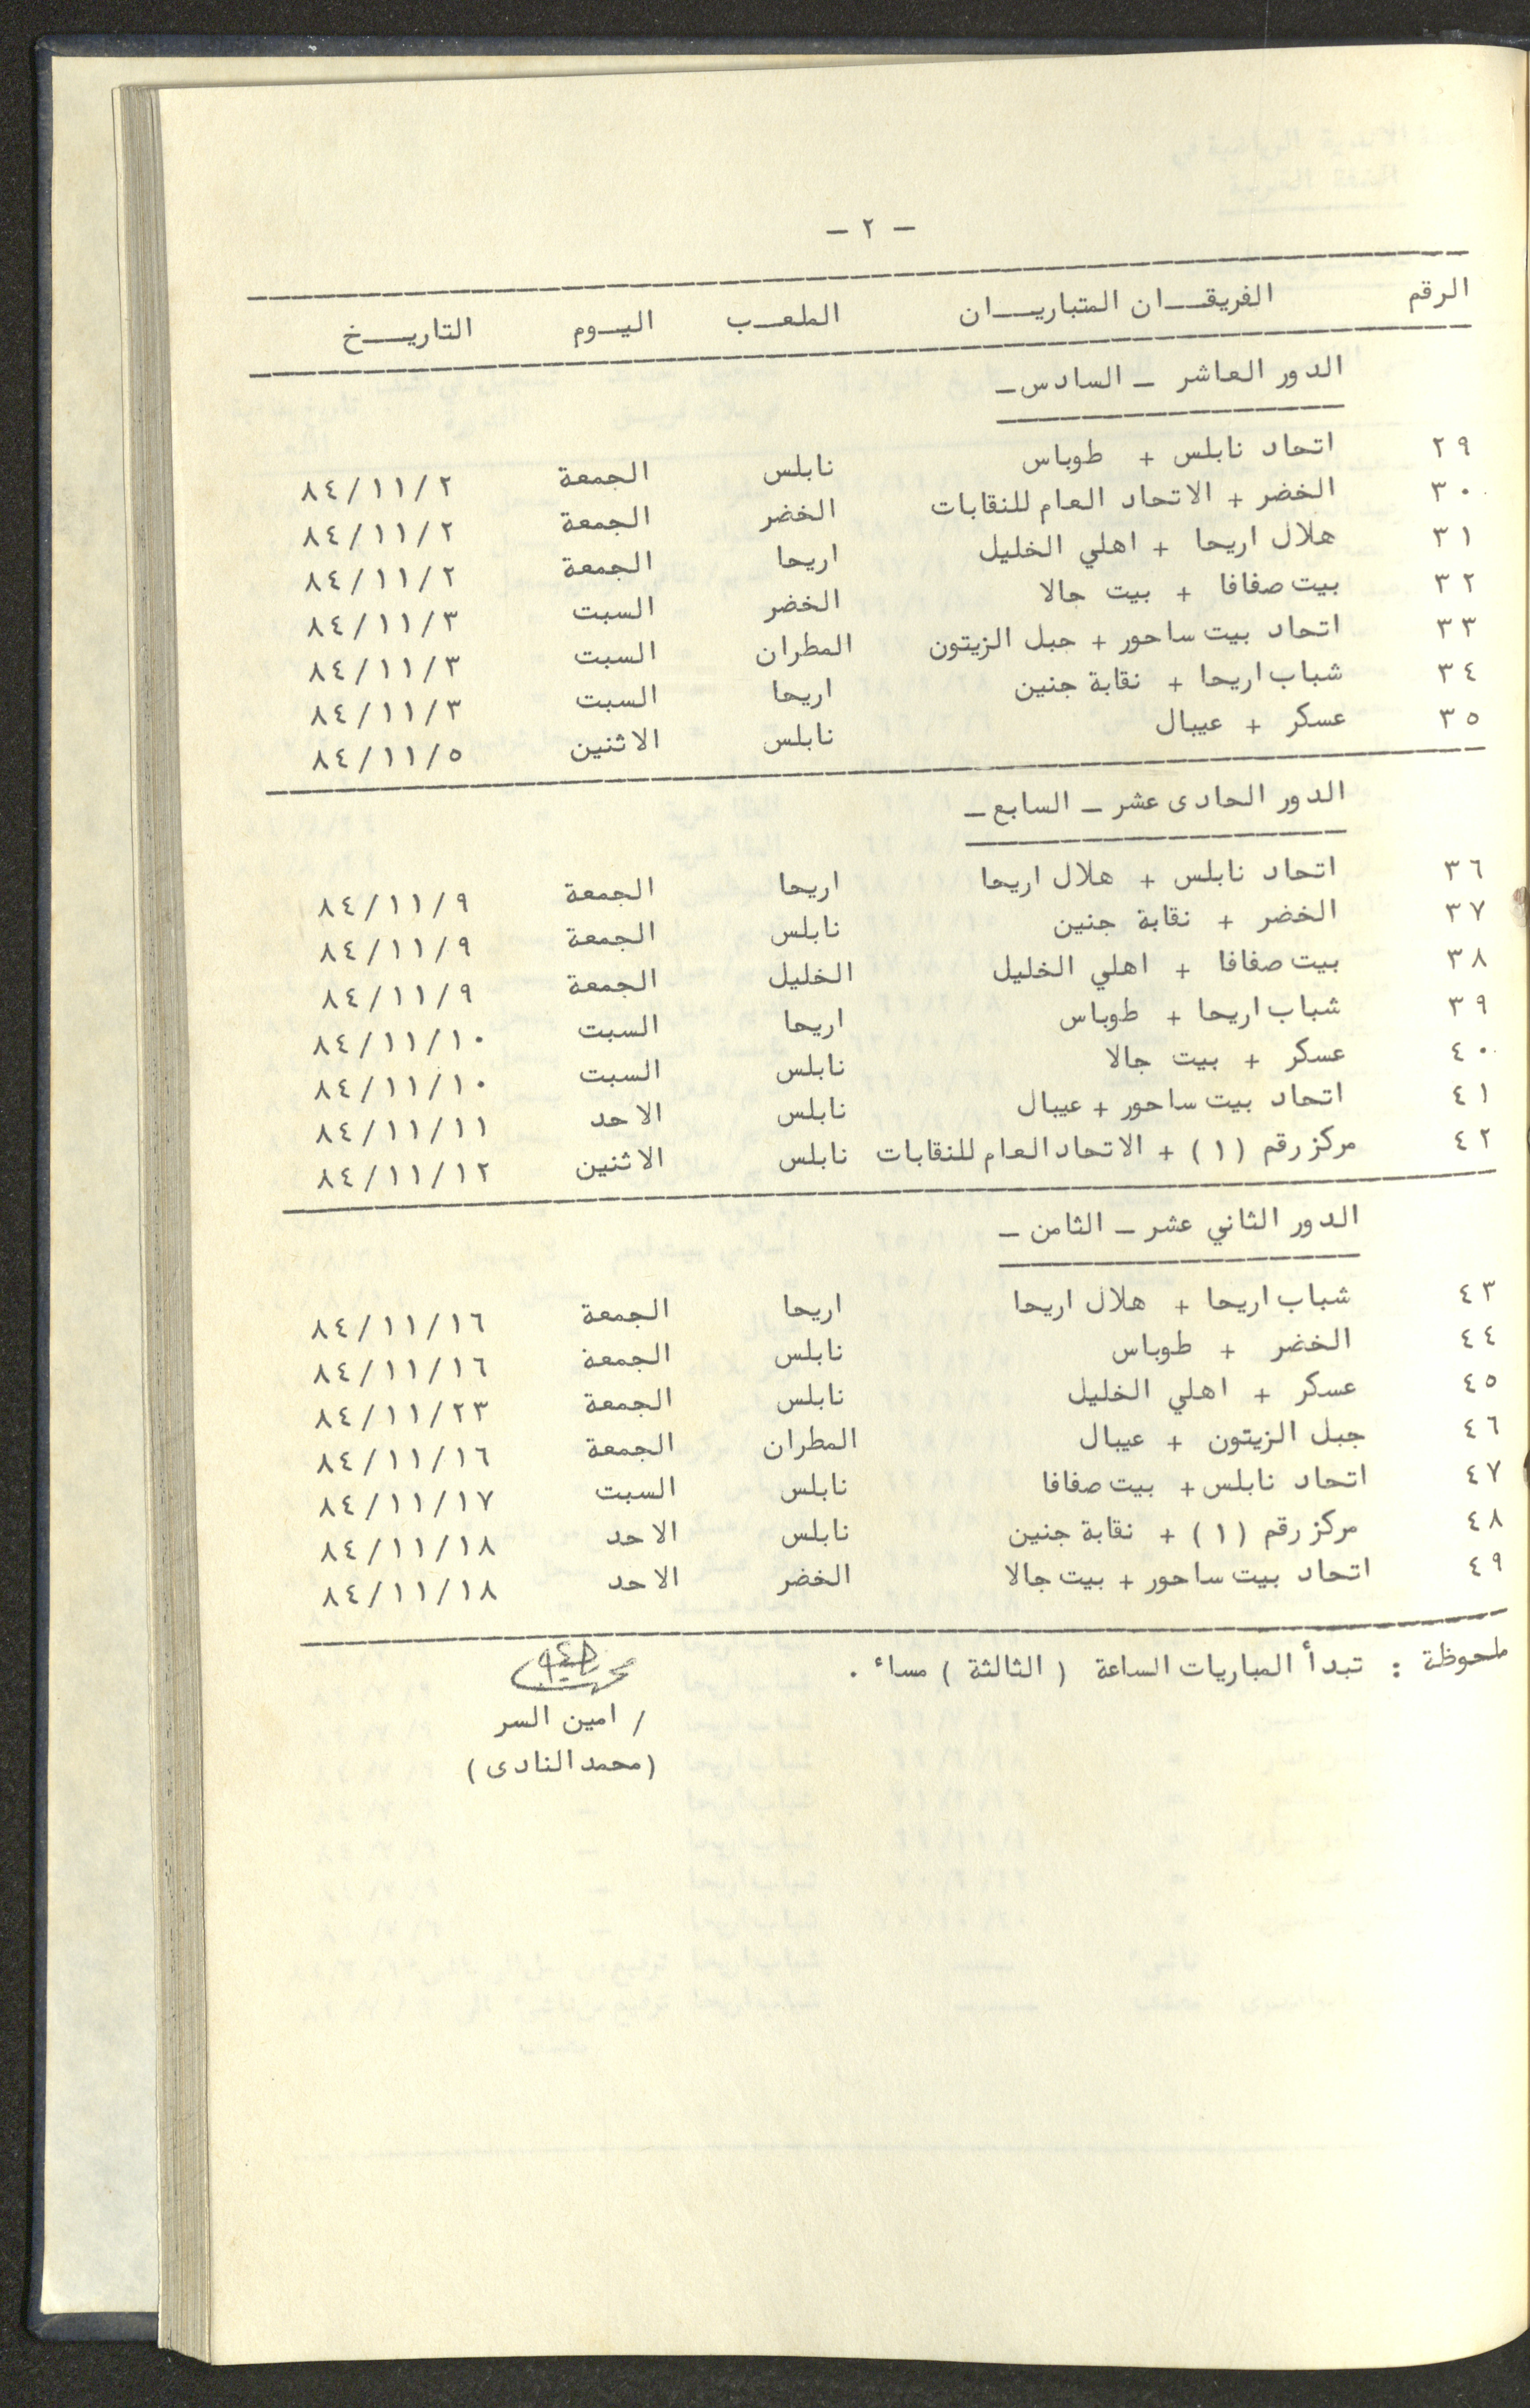 - ٢ -
الرقم الفريقـــان المتباريـــان الملعـــب اليـــوم التاريـــخ
الدور العاشر - السادس-
٢٩ اتحاد نابلس + طوباس نابلس الجمعة ٨٤/١١/٢
٣٠ الخضر + الاتحاد العام للنقابات الخضر الجمعة ٨٤/١١/٢
٣١ هلال اريحا + اهلي الخليل اريحا الجمعة ٨٤/١١/٢
٣٢ بيت صفافا + بيت جالا الخضر السبت ٨٤/١١/٣
٣٣ اتحاد بيت ساحور + جبل الزيتون المطران السبت ٨٤/١١/٣
٣٤ شباب اريحا + نقابة جنين اريحا السبت ٨٤/١١/٣
٣٥ عسكر + عيبال نابلس الاثنين ٨٤/١١/٥
الدور الحادى عشر - السابع -
٣٦ اتحاد نابلس + هلال اريحا اريحا الجمعة ٨٤/١١/٩
٣٧ الخضر + نقابة جنين نابلس الجمعة ٨٤/١١/٩
٣٨ بيت صفافا + اهلي الخليل الخليل الجمعة ٨٤/١١/٩
٣٩ شباب اريحا + طوباس اريحا السبت ٨٤/١١/١٠
٤٠ عسكر + بيت جالا نابلس السبت ٨٤/١١/١٠
٤١ اتحاد بيت ساحور + عيبال نابلس الاحد ٨٤/١١/١١
٤٢ مركز رقم (١) + الاتحاد العام للنقابات نابلس الاثنين ٨٤/١١/١٢
الدور الثاني عشر - الثامن -
٤٣ شباب اريحا + هلال اريحا اريحا الجمعة ٨٤/١١/١٦
٤٤ الخضر + طوباس نابلس الجمعة ٨٤/١١/١٦
٤٥ عسكر + اهلي الخليل نابلس الجمعة ٨٤/١١/٢٣
٤٦ جبل الزيتون + عيبال المطران الجمعة ٨٤/١١/١٦
٤٧ اتحاد نابلس + بيت صفافا نابلس السبت ٨٤/١١/١٧
٤٨ مركز رقم (١) + نقابة جنين نابلس الاحد ٨٤/١١/١٨
٤٩ اتحاد بيت ساحور + بيت جالا الخضر الاحد ٨٤/١١/١٨
ملحوظة : تبدأ المباريات الساعة ( الثالثة ) مساء .
/ امين السر
(محمد النادى)